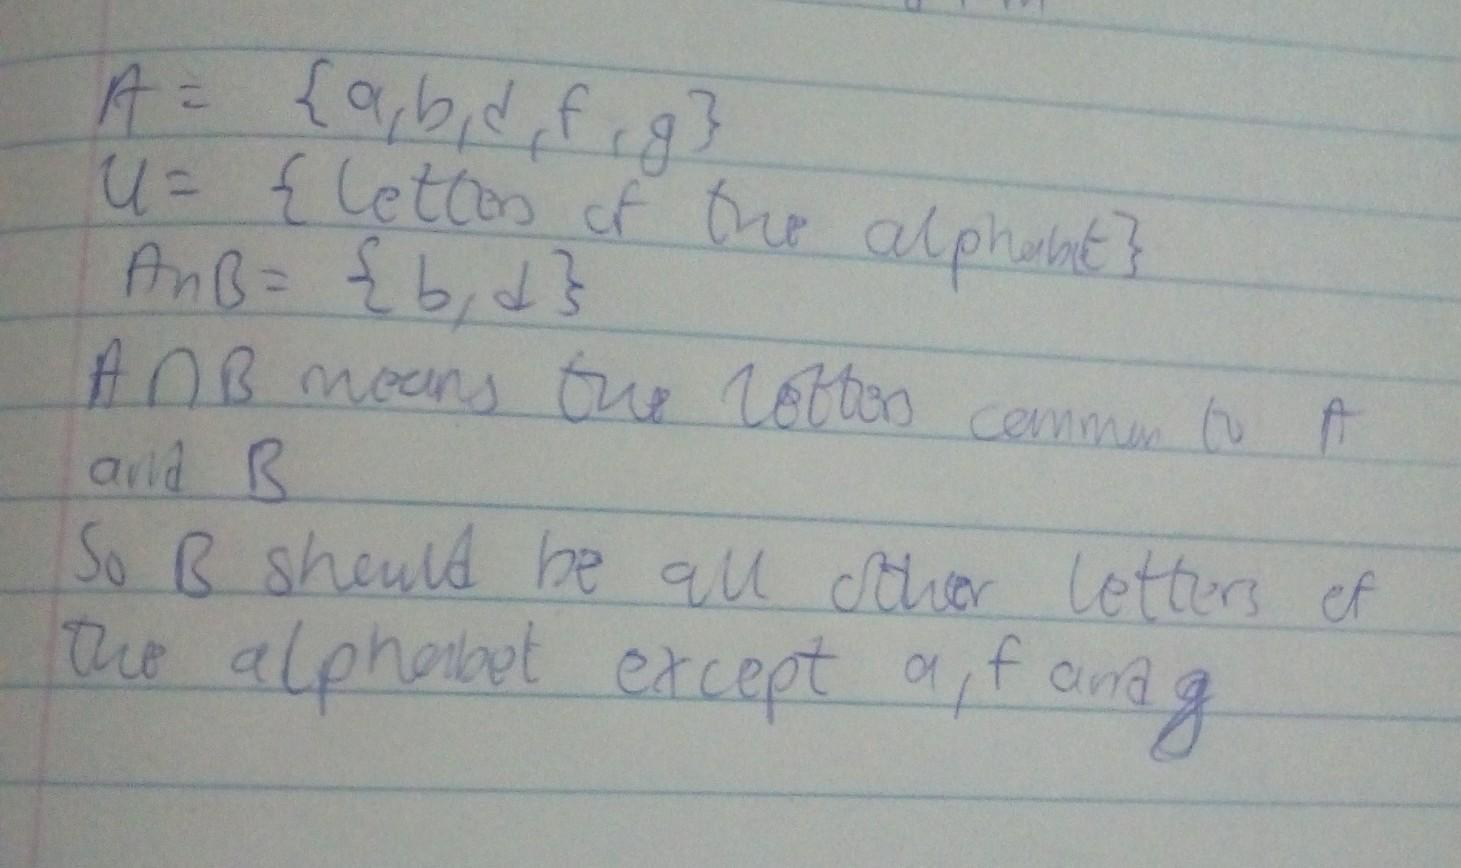 A = {a,b,d,f,g}
U = {letters of the alphabet}
AnB = {b,d}
A∩B means the letters common to A
and B
So B should be all other letters of
the alphabet except a,f and g